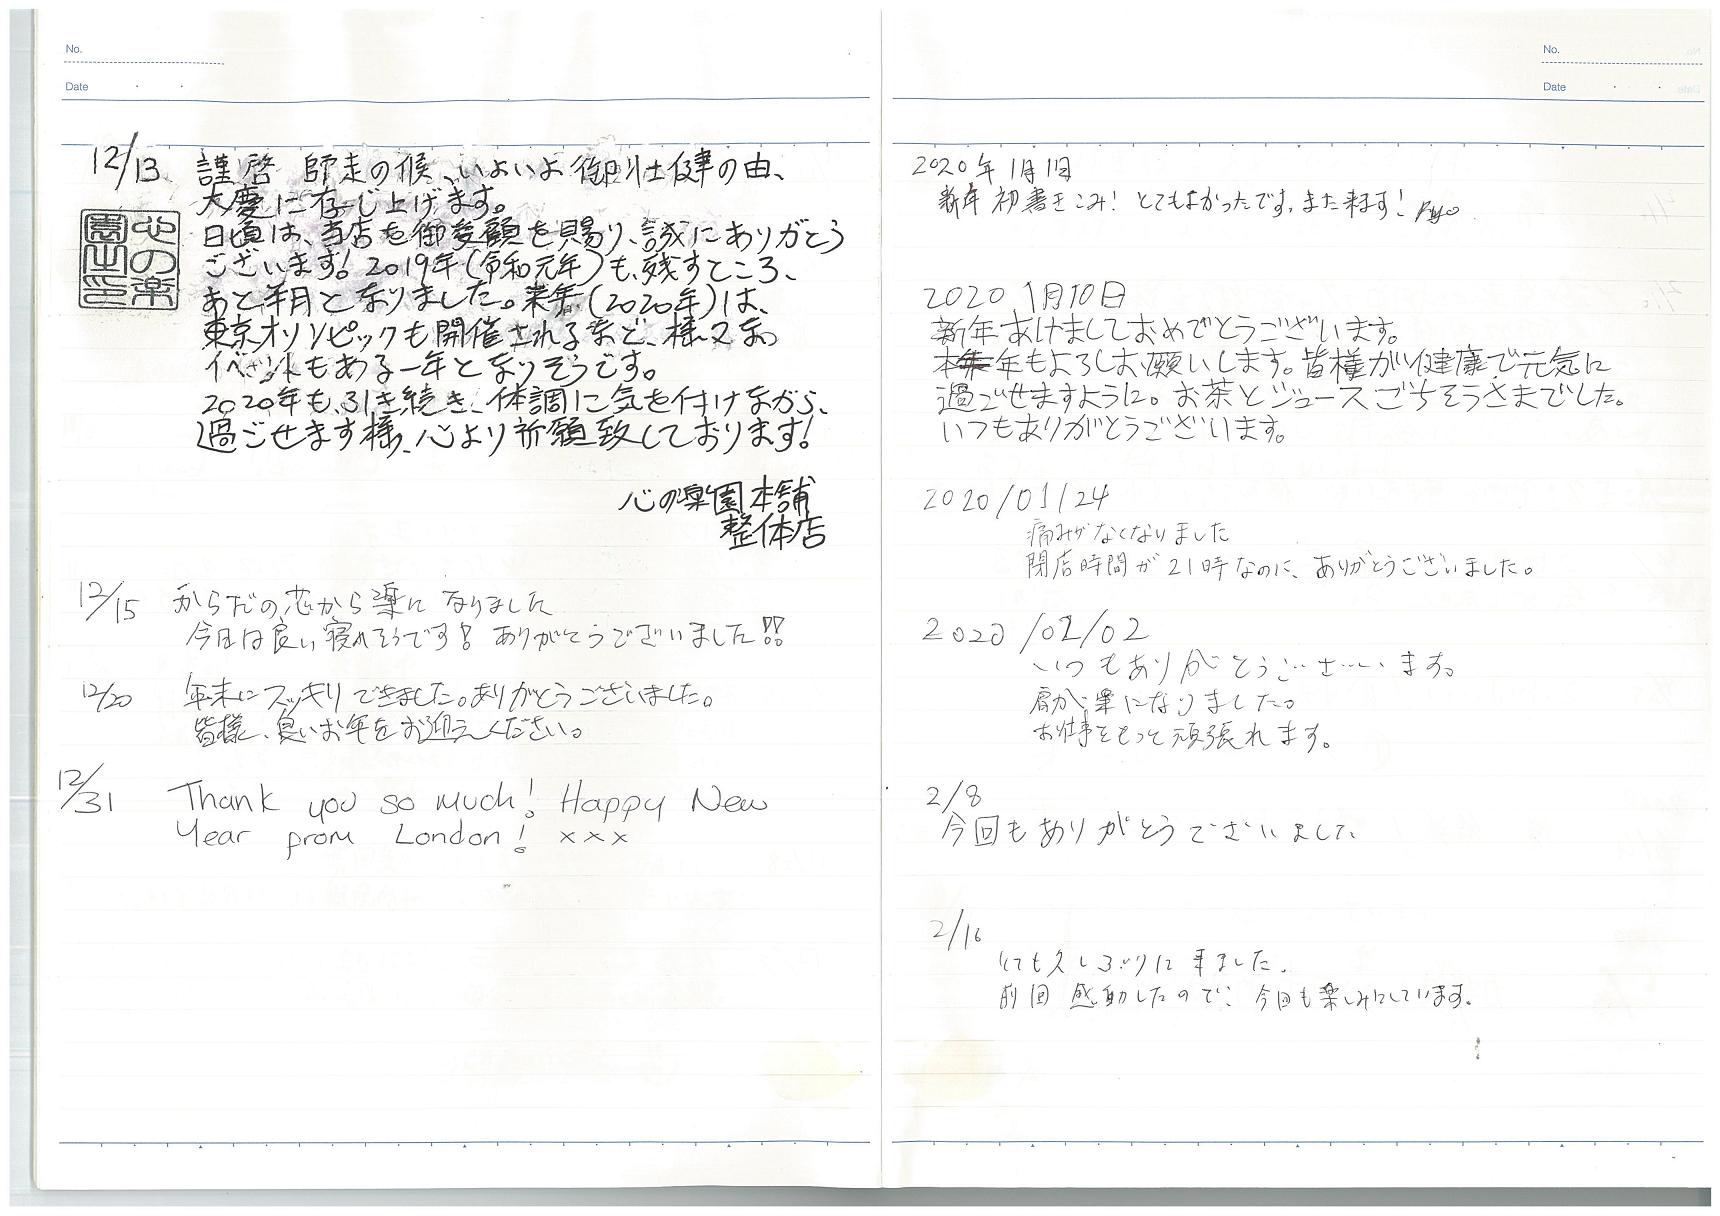 No.
Date
12/13 謹啓 師走の候、いよいよ御壮健の由、
大慶に存じ上げます。
日頃は、当店を御愛顧を賜り、誠にありがとう
ございます!2019年(令和元年)も、残すところ、
あと半月となりました。来年(2020年)は、
東京オリンピックも開催されるなど、様々な
イベントもある一年となりそうです。
2020年も、引き続き、体調に気を付けながら、
過ごせます様、心より祈願致しております!
心の楽園本舗
整体店
心の楽
園之印
12/15 からだの芯から楽になりました
今日は良い寝れそうです! ありがとうございました!!
12/20 年末にスッキリできました。ありがとうございました。
皆様、良いお年をお迎えください。
12/31 Thank you so much! Happy New
Year from London! xxx
No.
Date
2020年1月1日
新年初書きこみ! とてもよかったです。また来ます!
2020 1月10日
新年あけましておめでとうございます。
本年もよろしお願いします。皆様がい健康で元気に
過ごせますように。お茶とジュースごちそうさまでした。
いつもありがとうございます。
2020/01/24
痛みがなくなりました
閉店時間が21時なのに、ありがとうございました。
2020/02/02
いつもありがとうございます。
肩が楽になりました。
お仕事をもっと頑張れます。
2/8
今回もありがとうございました
2/16
とても久しぶりに来ました。
前回感動したので、今回も楽しみにしています。